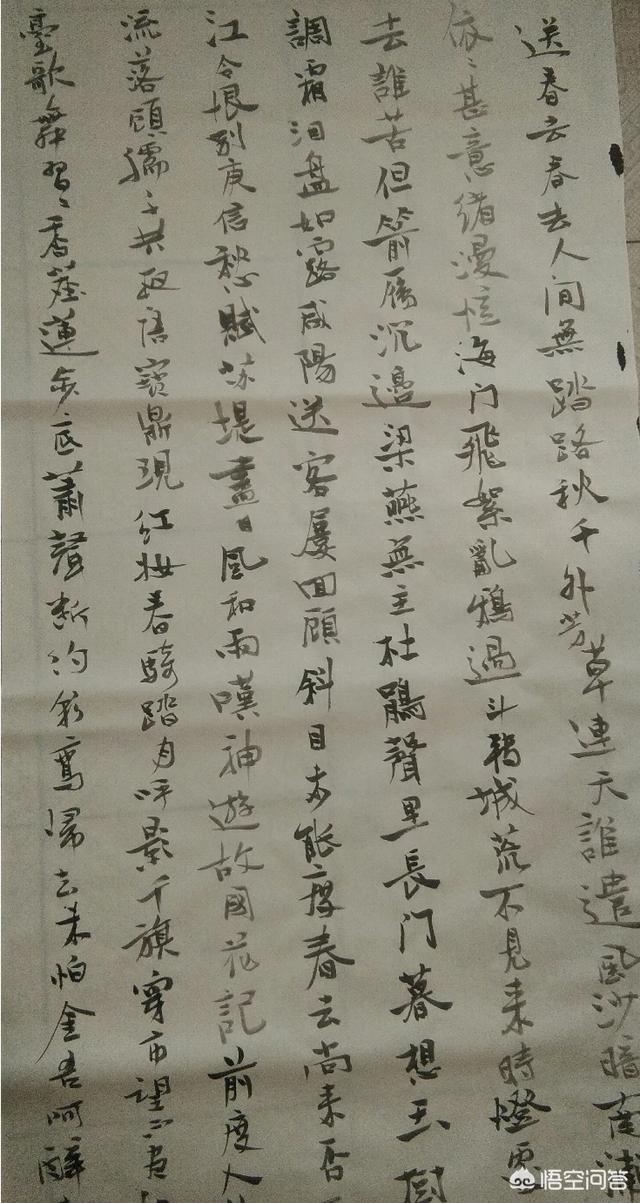 送春去春去人間無踏路秋千外芳草連天誰遣風沙暗南浦
依〻甚意緒漫憶海门飛絮亂鴉過斗轉城荒不見来時燈
去誰苦但箭雁沉邊梁燕無主杜鵑聲里長门暮想玉樹
調霜泪盘如露咸陽送客屢回顧斜日未能度春去尚来否
江令恨别庾信愁賦苏堤盡日風和雨嘆神遊故國花記前度人
流落頋孺子共夜語寳鼎現红妆春騎踏月呼影千旗穿市望不盡
臺歌舞習〻香塵蓮步底蕭聲断约彩鸾帰去未怕金吾呵醉
悟空问答